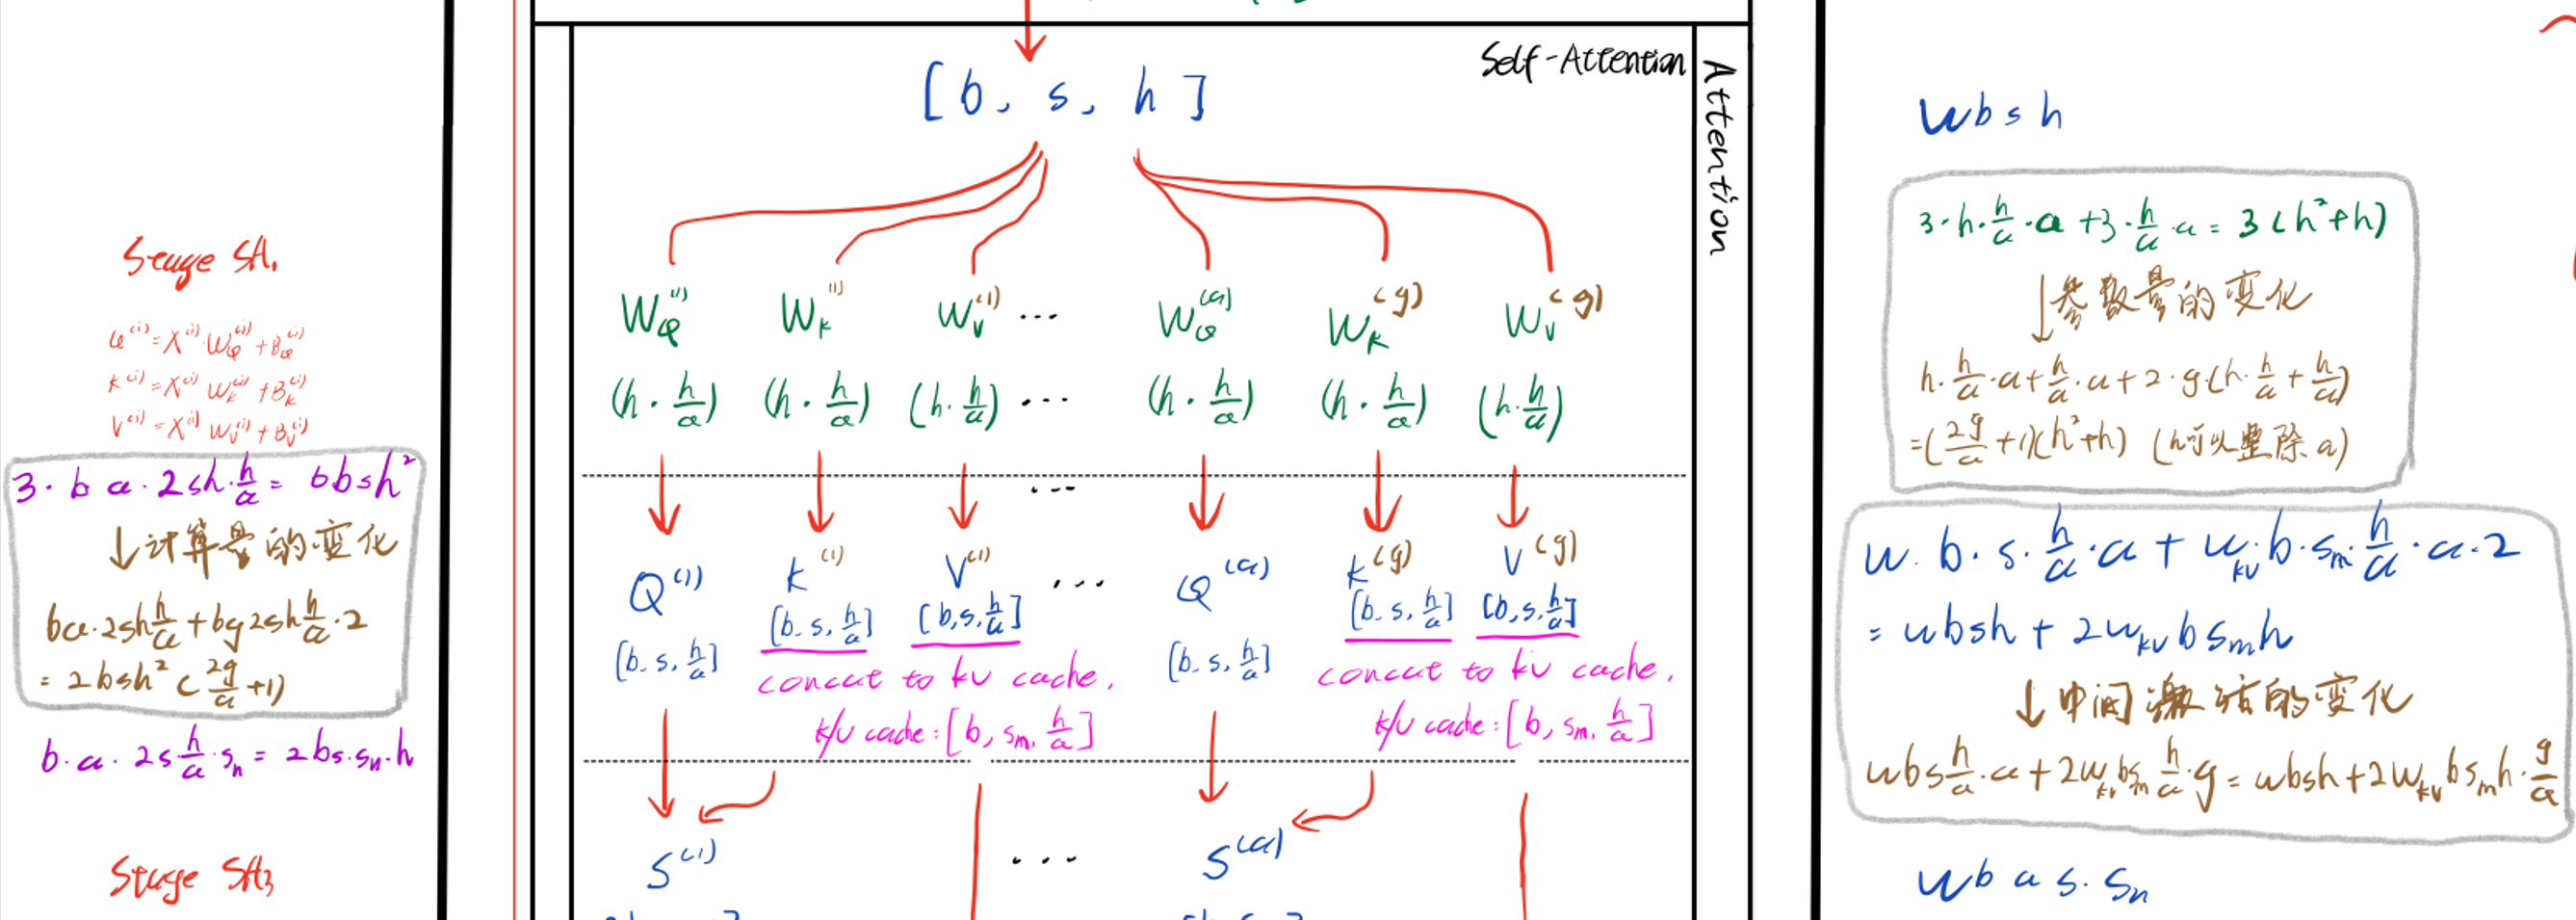 Stage SA₁
Q⁽ⁱ⁾ = X⁽ⁱ⁾·W_Q⁽ⁱ⁾ + B_Q⁽ⁱ⁾
K⁽ⁱ⁾ = X⁽ⁱ⁾ W_K⁽ⁱ⁾ + B_K⁽ⁱ⁾
V⁽ⁱ⁾ = X⁽ⁱ⁾ W_V⁽ⁱ⁾ + B_V⁽ⁱ⁾
3·b a·2sh·h/a = 6bsh²
↓计算量的变化
ba·2sh h/a + bg2sh h/a·2
= 2bsh² (2g/a +1)
b·a·2s h/a·s_n = 2bs·s_n·h
Stage SA₃
Self-Attention
Attention
[b, s, h]
W_Q⁽¹⁾ W_K⁽¹⁾ W_V⁽¹⁾ ... W_Q⁽ᵃ⁾ W_K⁽ᵍ⁾ W_V⁽ᵍ⁾
(h·h/a) (h·h/a) (h·h/a) ... (h·h/a) (h·h/a) (h·h/a)
...
Q⁽¹⁾ K⁽¹⁾ V⁽¹⁾ ... Q⁽ᵃ⁾ K⁽ᵍ⁾ V⁽ᵍ⁾
[b, s, h/a] [b, s, h/a] [b, s, h/a] [b, s, h/a] [b, s, h/a] [b, s, h/a]
concat to kv cache,
k/v cache: [b, s_m, h/a]
concat to kv cache,
k/v cache: [b, s_m, h/a]
S⁽¹⁾ ... S⁽ᵃ⁾
wbsh
3·h·h/a·a + 3·h/a·a = 3(h²+h)
↓参数量的变化
h·h/a·a + h/a·a + 2·g·(h·h/a + h/a)
= (2g/a +1)(h²+h) (h可以整除a)
w·b·s·h/a·a + w_kv·b·s_m·h/a·a·2
= wbsh + 2w_kv b s_m h
↓中间激活的变化
wbs h/a·a + 2w_kv bs_m h/a·g = wbsh + 2w_kv b s_m h·g/a
wbas·s_n